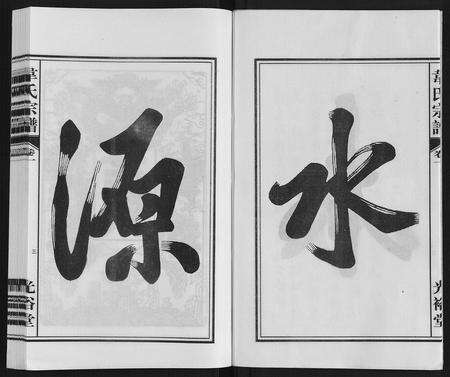 水
源
韋氏宗譜
卷一
光裕堂
韋氏宗譜
卷一
三
光裕堂